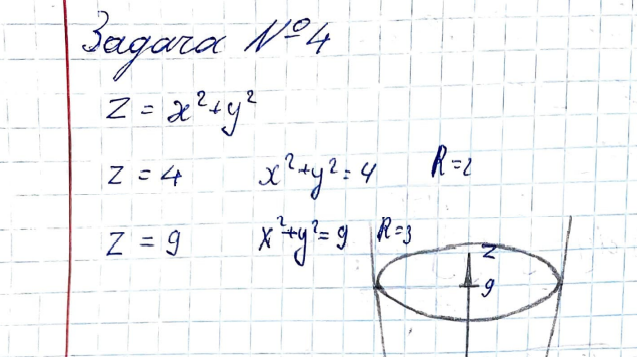 Задача №4
z = x²+y²
z = 4 x²+y²=4 R=2
z = 9 x²+y²=9 R=3
z
9